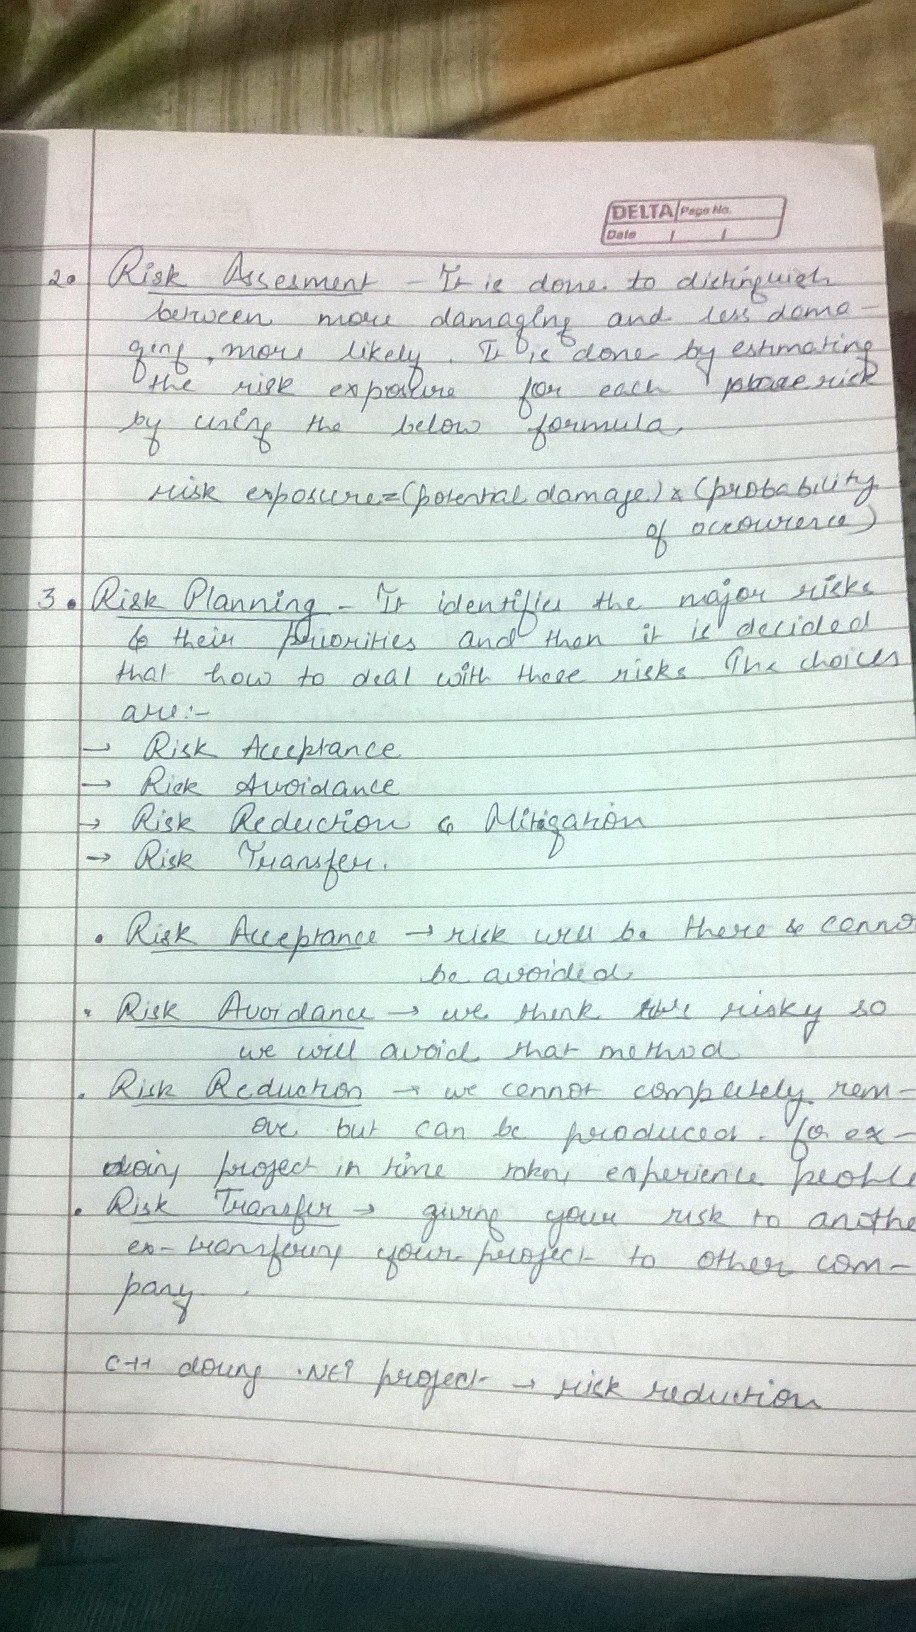 DELTA Page No.
Date / /
2. Risk Assesment - It is done to distinguish
between more damaging and less dama-
ging, more likely. It is done by estimating
the risk exposure for each risk
by using the below formula.
risk exposure = (potential damage) x (probability
of occourence)
3. Risk Planning - It identifies the major risks
& their priorities and then it is decided
that how to deal with these risks. The choices
are:-
→ Risk Acceptance
→ Risk Avoidance
→ Risk Reduction & Mitigation
→ Risk Transfer.
• Risk Acceptance → risk will be there & canno
be avoided.
• Risk Avoidance → we think risky so
we will avoid that method
• Risk Reduction → we cannot completely rem-
ove but can be produced. for ex-
doing project in time experience people
• Risk Transfer → giving your risk to anothe
ex- transfering your project to other com-
pany.
C++ doing .NET project → risk reduction